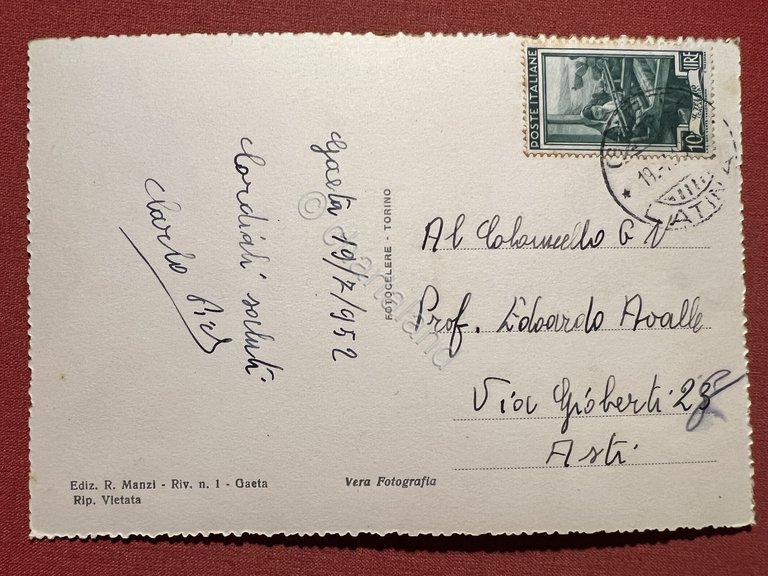 POSTE ITALIANE
LIRE
10
19.
ATINA
Gaeta 19/7/952
Cordiali saluti
Carlo
FOTOCELERE - TORINO
© Cartaland
Al Colonnello G N
Prof. Edoardo Avalle
Via Gioberti 23
Asti
Ediz. R. Manzi - Riv. n. 1 - Gaeta
Rip. Vietata
Vera Fotografia